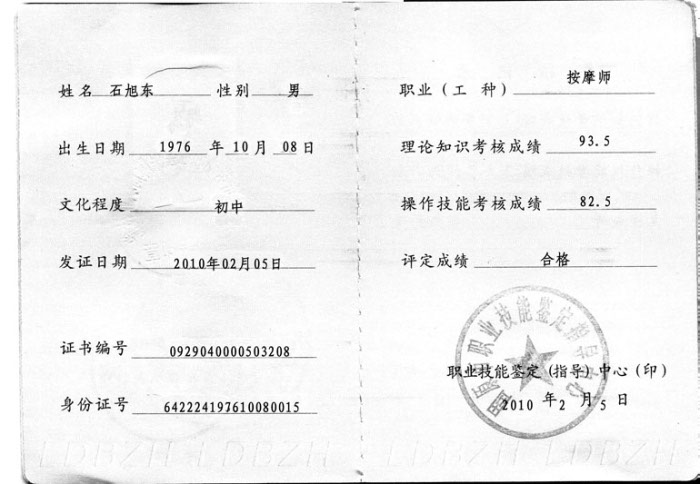 姓名 石旭东 性别 男
出生日期 1976 年 10 月 08 日
文化程度 初中
发证日期 2010年02月05日
证书编号 0929040000503208
身份证号 642224197610080015
职业（工 种） 按摩师
理论知识考核成绩 93.5
操作技能考核成绩 82.5
评定成绩 合格
职业技能鉴定指导中心
职业技能鉴定（指导）中心（印）
2010 年 2 月 5 日
LDBZH LDBZH LDBZH